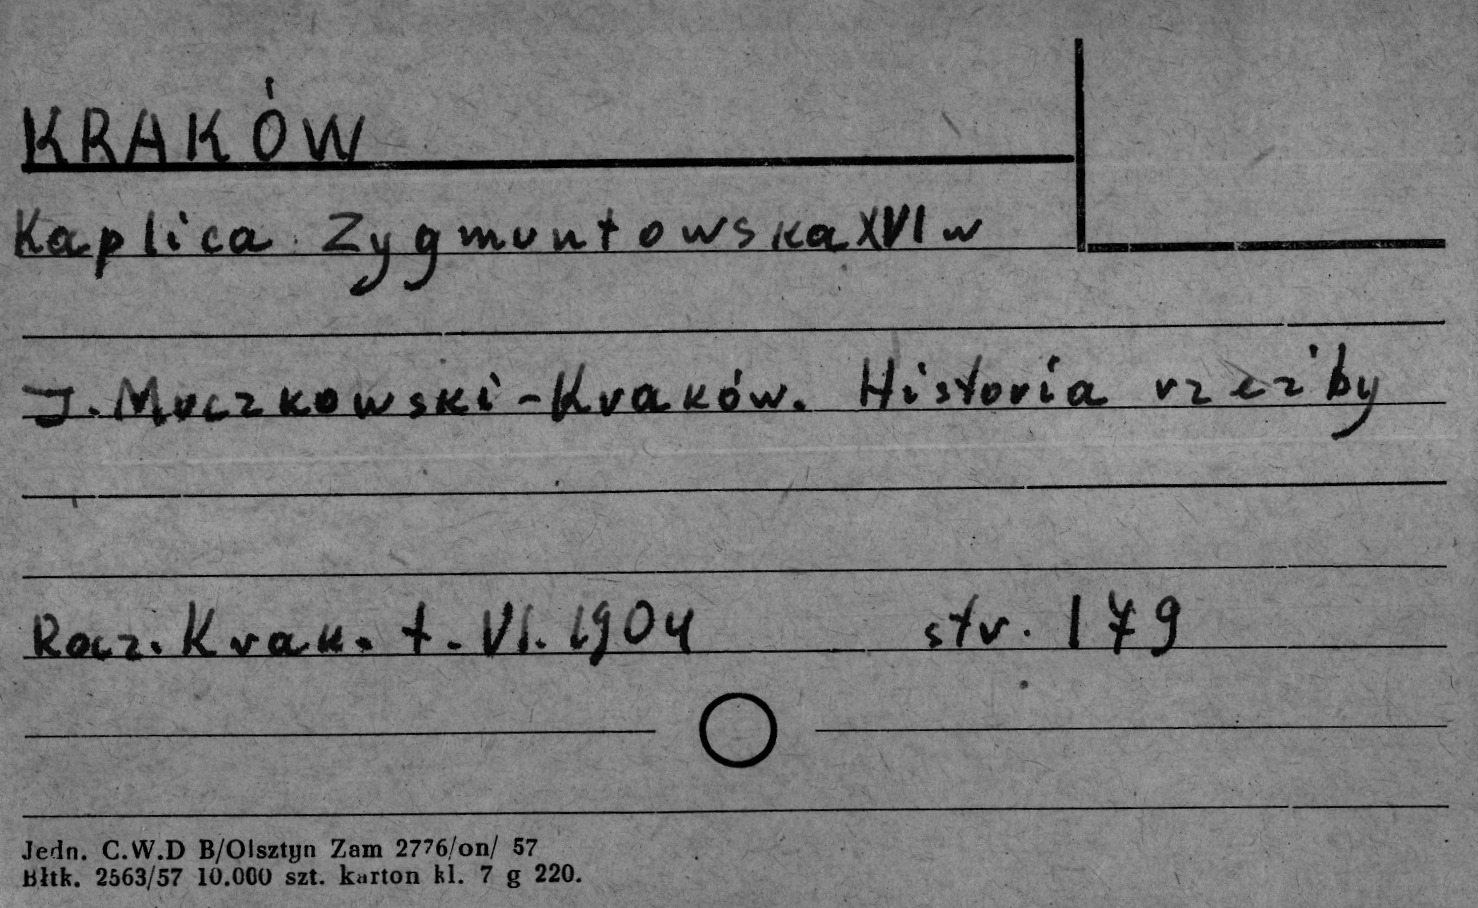 KRAKÓW
Kaplica Zygmuntowska XVI w
J. Muczkowski - Kraków. Historia rzeźby
Rocz. Krak. t. VI. 1904 str. 179
Jedn. C.W.D B/Olsztyn Zam 2776/on/ 57
Błtk. 2563/57 10.000 szt. karton kl. 7 g 220.